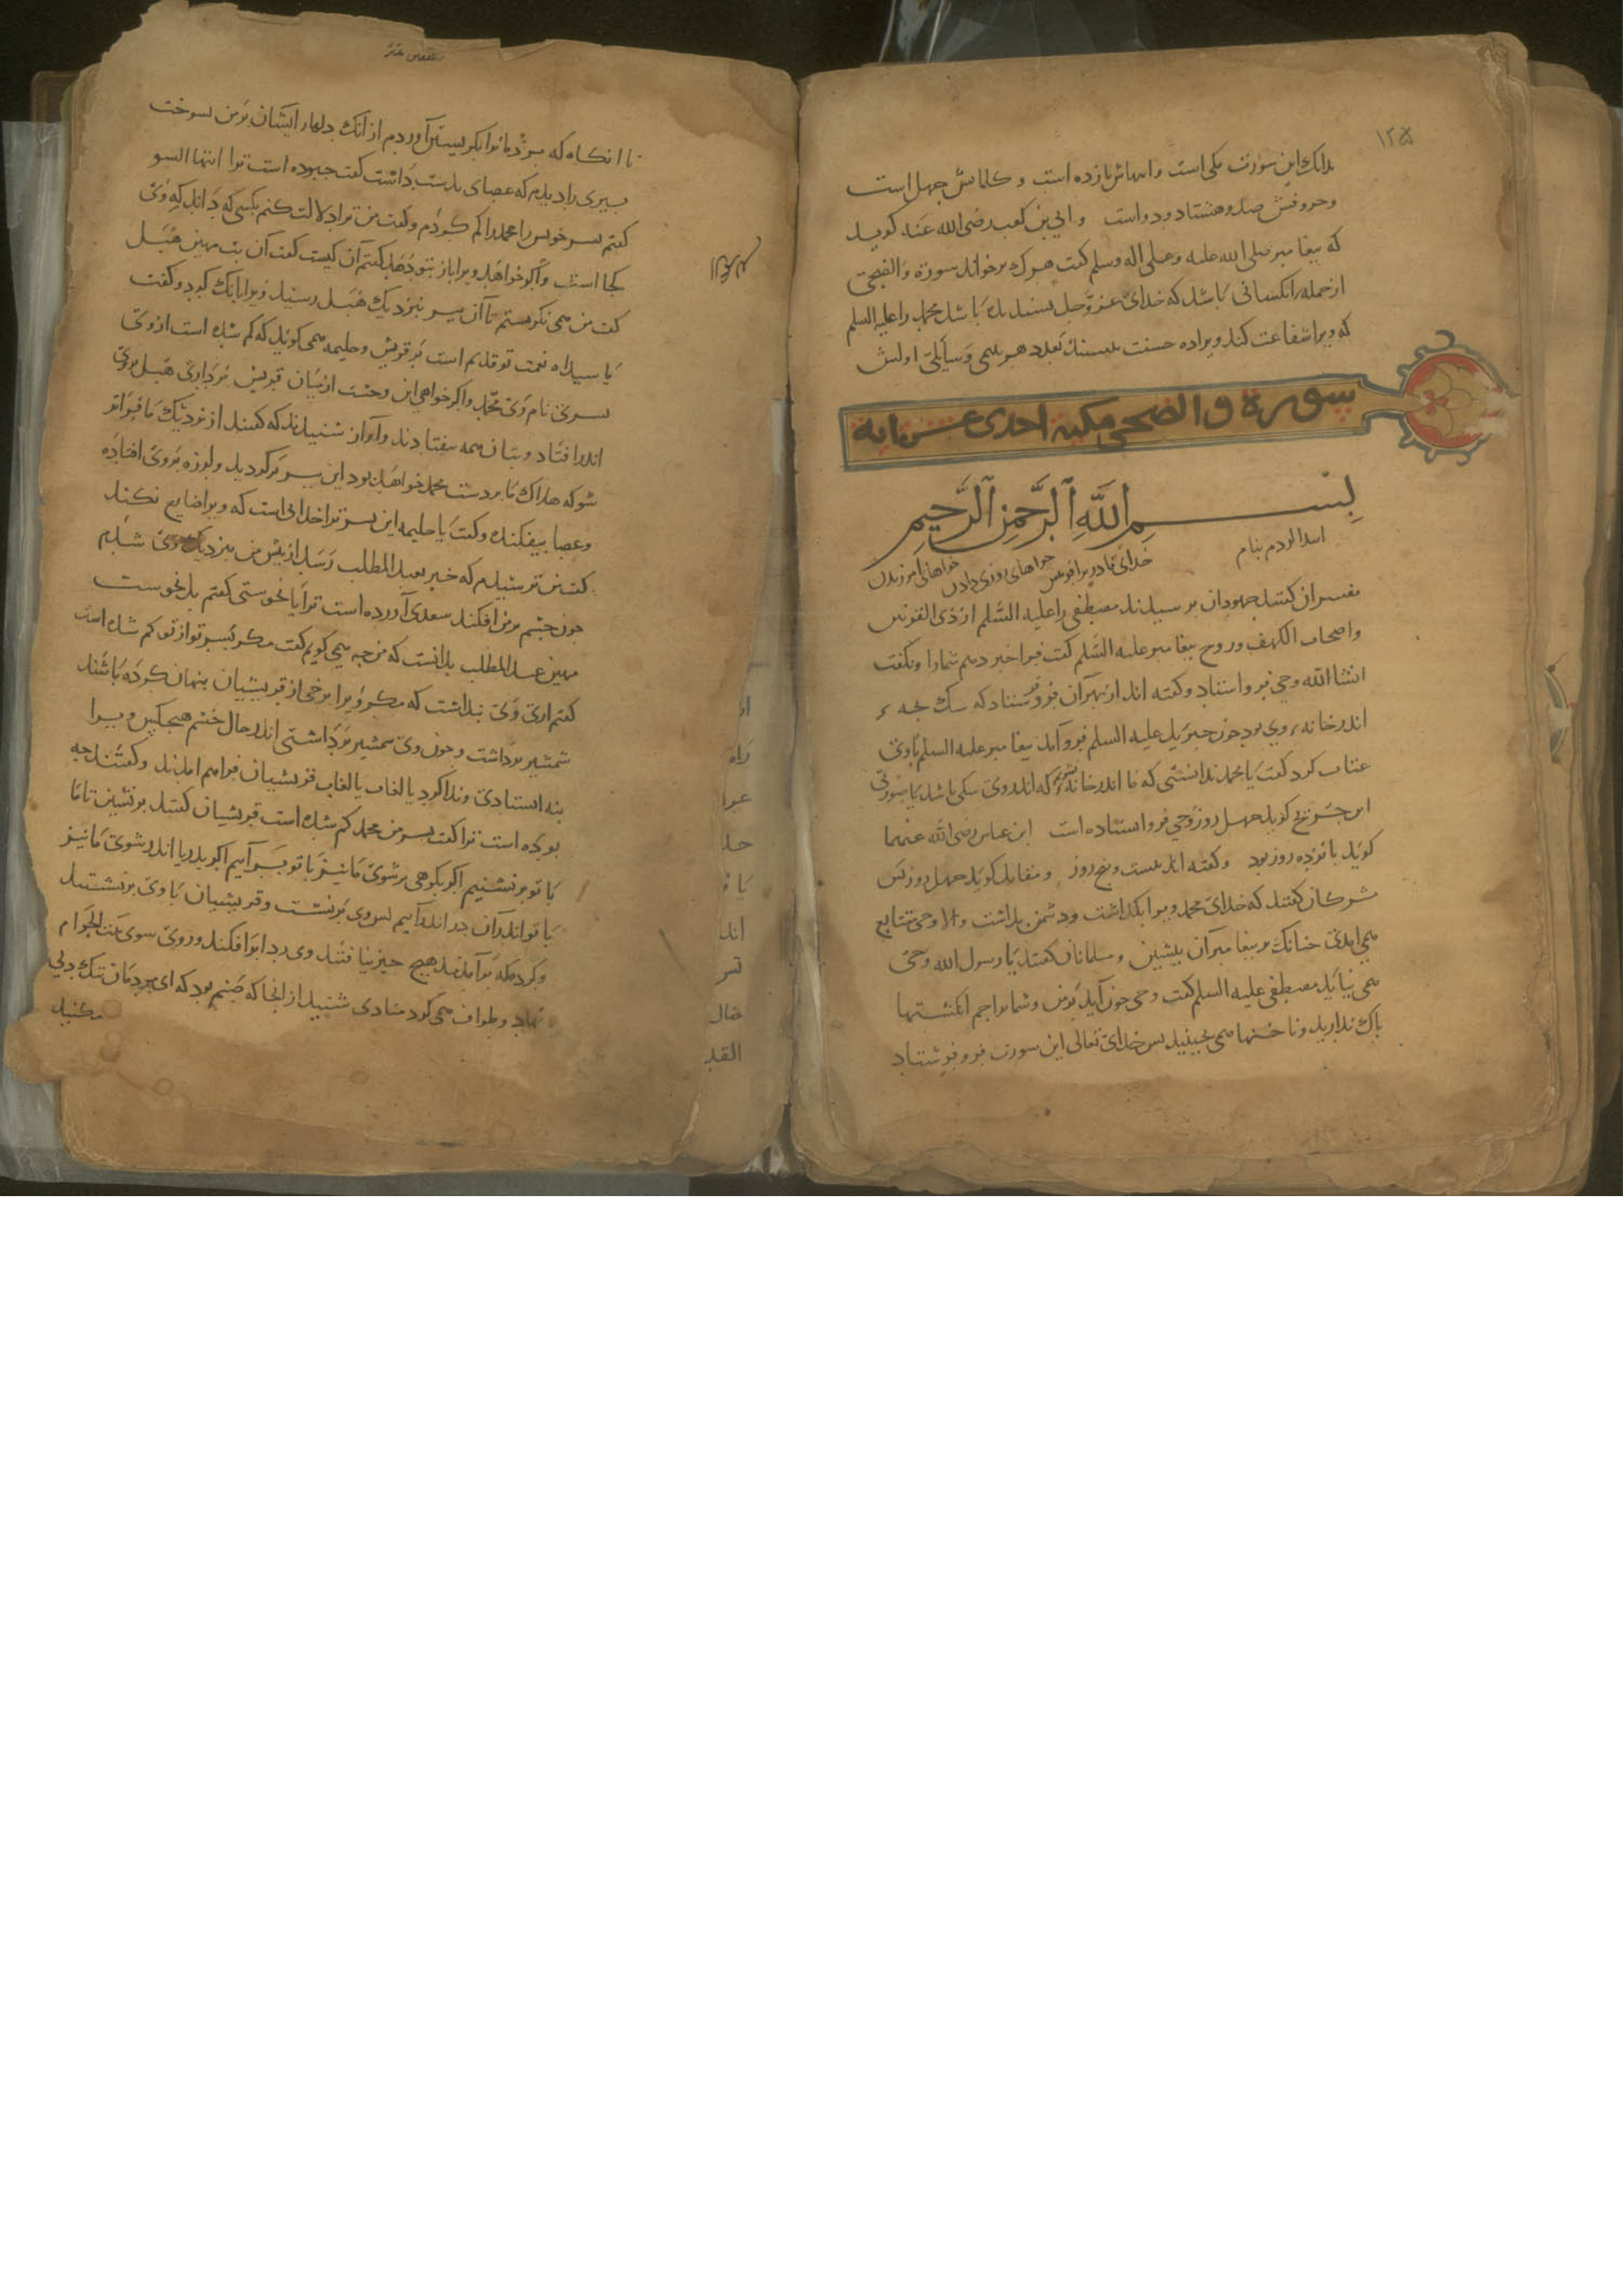 ۱۲۵
بدانك اين سورت مكى است وايتهاش يازده است و كلماتش چهل است
وحروفش صد وهشتاد ودو است وابى بن كعب رضى الله عنه كويد
كه پيغامبر صلى الله عليه وعلى اله وسلم كفت هرك برخواند سورة والضحى
از جمله آنكسانى باشد كه خداى عز وجل پسنديده باشد محمد را عليه السلم
كه ويرا شفاعت كند وبرا ده حسنت بعدد هر يتيمى وسايلى
سورة والضحى مكية احدى عشر اية
بسم الله الرحمن الرحيم
ابتدا كردم بنام خداى قادر بر افرينش خواهاى روزى دادن خواهانى امرزيدن
مفسران كفتند جهودان پرسيدند مصطفى را عليه السلم از ذى القرنين
واصحاب الكهف وروح پيغامبر عليه السلم كفت فردا خبر دهم شمارا ونكفت
انشا الله وحى فرو استاد وكفته اند از بهر آن فرو استاد كه سك بچه ء
اندر خانه ء وى بود چون جبرئيل عليه السلم فرو آمد پيغامبر عليه السلم با وى
عتاب كرد كفت يا محمد ندانستى كه ما اندر خانه نشويم كه اندر وى سكى باشد يا صورتى
ابن جريج كويد چهل روز وحى فرو استاده است ابن عباس رضى الله عنهما
كويد پانزده روز بود وكفته اند بيست وپنج روز ومقاتل كويد چهل روز پس
مشركان كفتند كه خداى محمد ويرا بكذاشت ودشمن بداشت والا وحى متتابع
همى امدى چنانك بر پيغامبران پيشين ومسلمانان كفتند يا رسول الله وحى
همى نيايد مصطفى عليه السلم كفت وحى چون آيد بر من وشما براجم انكشتها
پاك نداريد وناخنها همى نچينيد پس خداى تعالى اين سورت فرو فرستاد
تا انكاه كه مردمانرا بكريستن آوردم از انك دلهاء ايشان بر من بسوخت
پيرى را ديدم كه عصاى بدست داشت كفت چبوده است ترا ايتها السو
كفتم پسر خويش را محمد را كم كردم وكفت من ترا دلالت كنم بكسى كه داند كه وى
كجا است واكر خواهد ويرا باز بتو دهد كفتم آن كيست كفت آن بت مهين هبل
كفت من همى نكريستم تا آن پير بنزديك هبل رسيد ويرا بانك كرد وكفت
يا سيداه نعمت تو قديم است بر قريش وحليمه همى كويد كه كم شده است از وى
پسرى نام وى محمد واكر خواهى اين وحشت از ميان قريش بردارى هبل بروى
اندر افتاد وبتان همه بيفتادند وآواز شنيدند كه كفتند از نزديك ما فراتر
شو كه هلاك ما بر دست محمد خواهد بود اين پير بركرديد ولرزه بر وى افتاده
وعصا بيفكنده وكفت يا حليمه اين پسر ترا خداى است كه ويرا ضايع نكند
كفت من ترسيدم كه خبر بعبد المطلب رسد از پيش من بنزديك وى شدم
چون چشم بر من افكند سعدى آورده است ترا يا نحوستى كفتم بل نحوست
مهين عبد المطلب بدانست كه من چه همى كويم كفت مكر پسر تو از تو كم شده است
كفتم ارى وى پنداشت كه مكر ويرا برخى از قريشيان پنهان كرده باشند
شمشير برداشت وچون وى شمشير برداشتى اندر حال خشم هيچكس ويرا
نه استادى وندا كرد يا لغالب يا لغالب قريشيان فراهم امدند وكفتند چه
بوده است ترا كفت پسر من محمد كم شده است قريشيان كفتند برنشين تا ما
با تو برنشينيم اكر بكوهى برشوى ما نيز با تو بر آييم اكر بدريا اندر شوى ما نيز
با تو اندر آن در اندر آييم پس وى برنشست وقريشيان با وى برنشستند
وكرد مكه برآمدند هيچ چيز نيافتند وى ردا برافكند وروى سوى بيت الحرام
نهاد وطواف همى كرد منادى شنيد از انجا كه صنم بود كه اى مردمان تنك دلى
مكنيد
راه
اند
القد